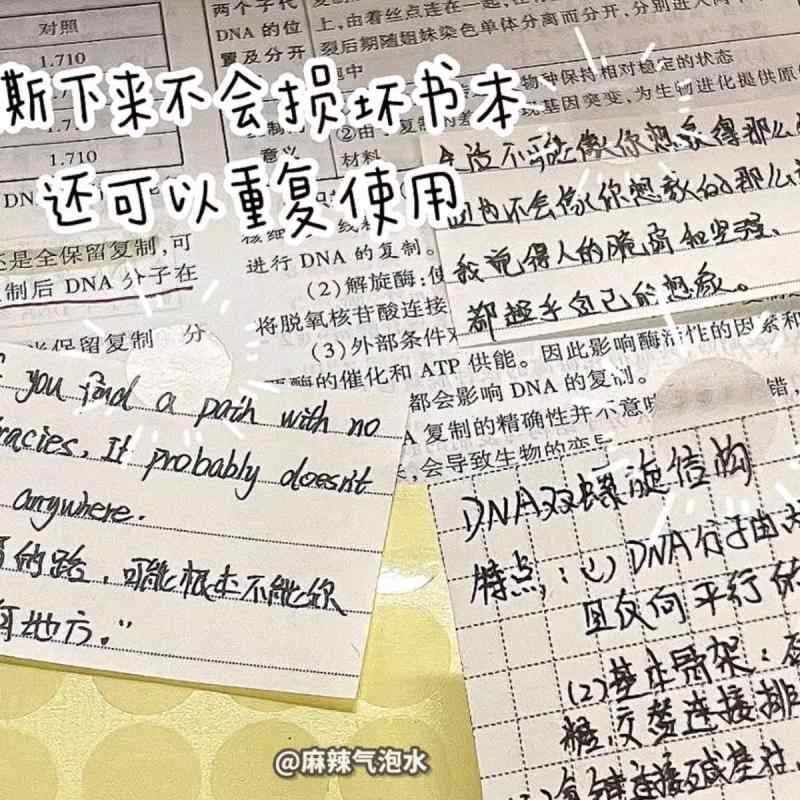 对照
1.710
1.710
两个子代
DNA 的位
置及分开
上，由着丝点连在一起，在
裂后期随姐妹染色单体分离而分开，分别进入两
物种保持相对稳定的状态
基因突变，为生物进化提供原
意义
材料
撕下来不会损坏书本
还可以重复使用
还是全保留复制，可
制后 DNA 分子在
保留复制 分
进行 DNA 的复制。
(2)解旋酶：使
将脱氧核苷酸连接
(3)外部条件
酶的催化和 ATP 供能。因此影响酶活性的因素和
都会影响 DNA 的复制。
复制的精确性并不意味
错，
会导致生物的变异
生活不可能像你想象得那么
但也不会像你想象的那么
我觉得人的脆弱和坚强、
都超乎自己的想象。
you find a path with no
racies, It probably doesn't
anywhere.
的路，可能根本不能你
何地方。”
DNA双螺旋结构
特点：(1) DNA分子由
且反向平行
(2)基本骨架：
糖交替连接排
@麻辣气泡水